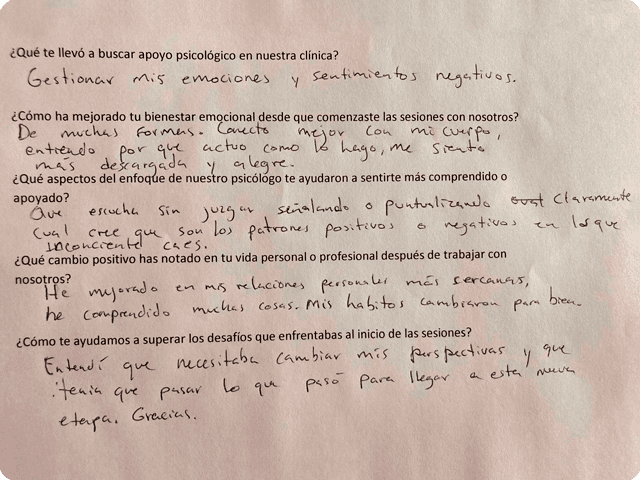 ¿Qué te llevó a buscar apoyo psicológico en nuestra clínica?
Gestionar mis emociones y sentimientos negativos.
¿Cómo ha mejorado tu bienestar emocional desde que comenzaste las sesiones con nosotros?
De muchas formas. Conecto mejor con mi cuerpo,
entiendo por que actuo como lo hago, me siento
más descargada y alegre.
¿Qué aspectos del enfoque de nuestro psicólogo te ayudaron a sentirte más comprendido o
apoyado?
Que escucha sin juzgar señalando o puntualizando claramente
cual cree que son los patrones positivos o negativos en los que
inconciente caes.
¿Qué cambio positivo has notado en tu vida personal o profesional después de trabajar con
nosotros?
He mejorado en mis relaciones personales más sercanas,
he comprendido muchas cosas. Mis habitos cambiaron para bien.
¿Cómo te ayudamos a superar los desafíos que enfrentabas al inicio de las sesiones?
Entendí que necesitaba cambiar mis perspectivas y que
tenia que pasar lo que pasó para llegar a esta nueva
etapa. Gracias.